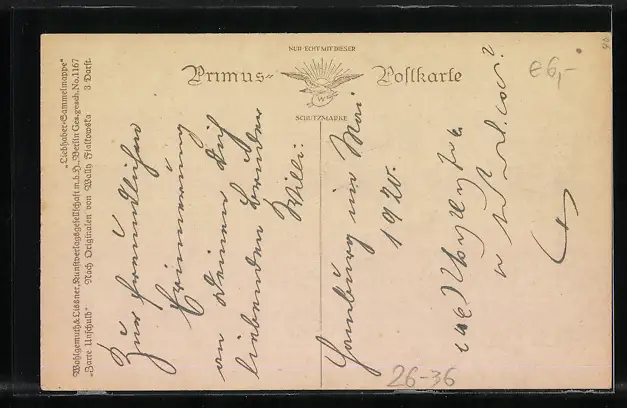 NUR ECHT MIT DIESER
Primus-Postkarte
W
SCHUTZMARKE
Wohlgemuth & Lissner, Kunstverlagsgesellschaft m.b.H., Berlin Ges.gesch. No. 1167
„Liebhaber-Sammelmappe“
„Zarte Unschuld“ Nach Originalen von Wally Fialkowska 3 Darst.
Zur freundlichen
Erinnerung
an Deinen Dich
liebenden Bruder
Willi.
Hamburg im Mai
1920.
€6,-
26-36